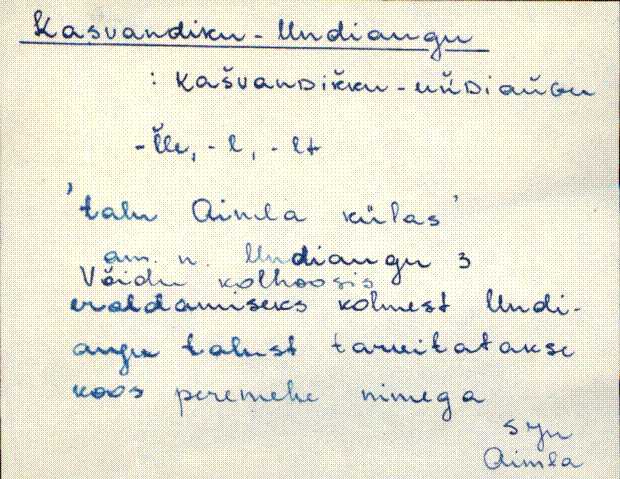 Kasvandiku-Undiangu
: kašvanDiƙƙu-uňDiaňGu
-l̆le, -l, -lt
'talu Aimla külas'
am. n. Undiangu 3
Võidu kolhoosis
eraldamiseks kolmest Undi-
angu talust tarvitatakse
koos peremehe nimega
Aimla